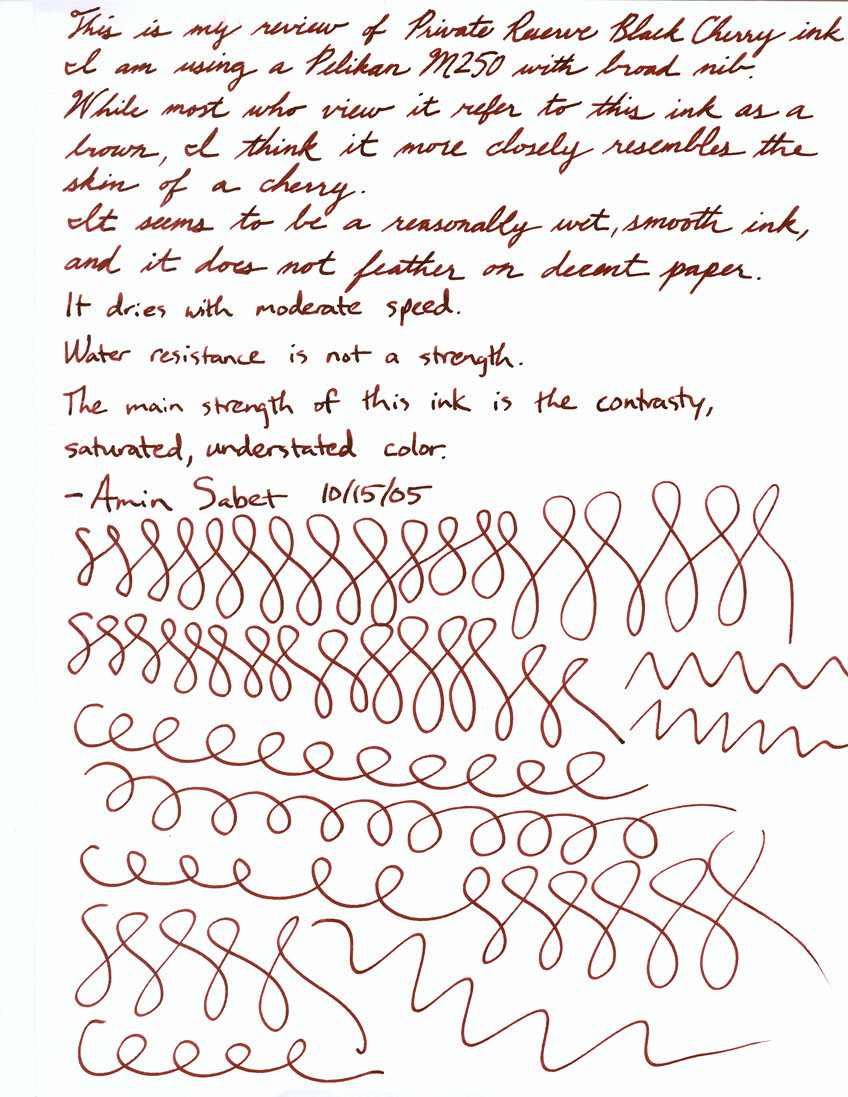 This is my review of Private Reserve Black Cherry ink
I am using a Pelikan M250 with broad nib.
While most who view it refer to this ink as a
brown, I think it more closely resembles the
skin of a cherry.
It seems to be a reasonally wet, smooth ink,
and it does not feather on decent paper.
It dries with moderate speed.
Water resistance is not a strength.
The main strength of this ink is the contrasty,
saturated, understated color.
- Amin Sabet 10/15/05